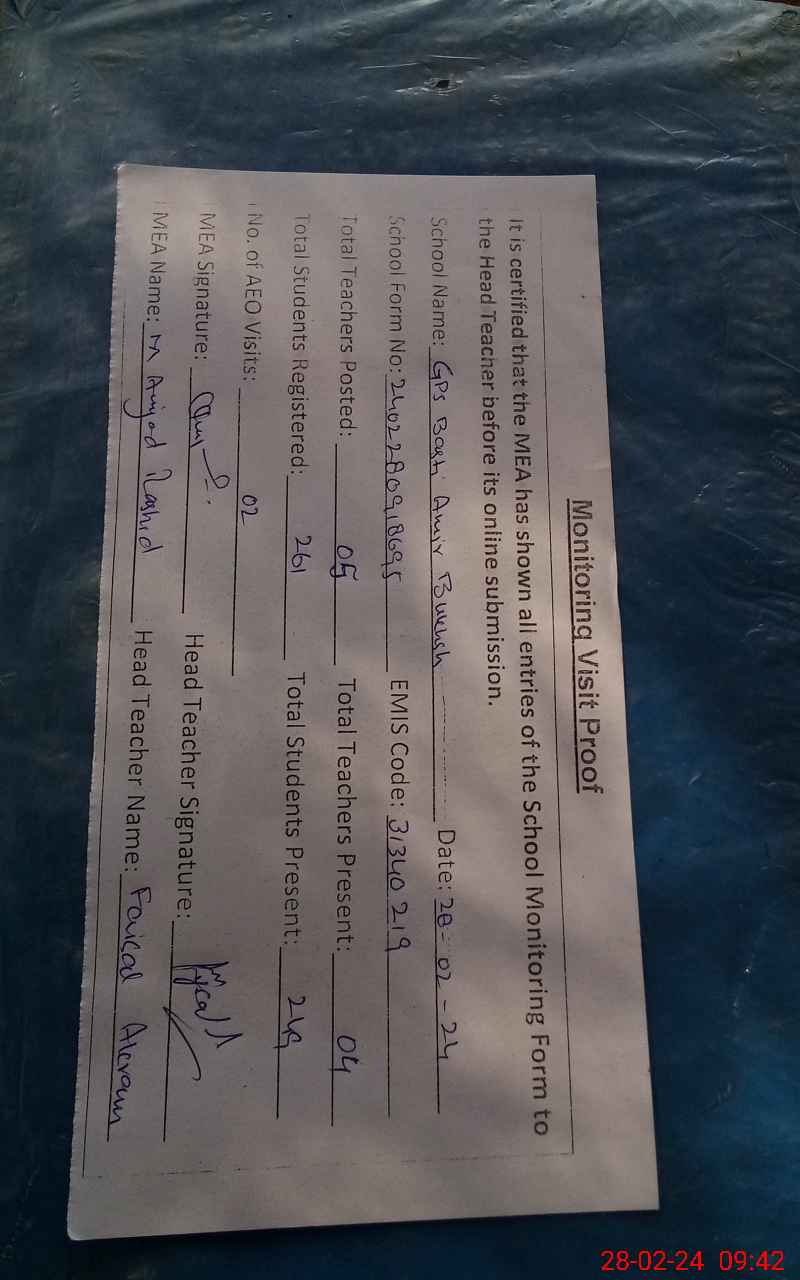 Monitoring Visit Proof
It is certified that the MEA has shown all entries of the School Monitoring Form to
the Head Teacher before its online submission.
School Name: GPS Basti Amir Bukhsh Date: 28-02-24
School Form No: 2402280918695 EMIS Code: 31340219
Total Teachers Posted: 05 Total Teachers Present: 04
Total Students Registered: 261 Total Students Present: 249
No. of AEO Visits: 02
MEA Signature: Head Teacher Signature:
MEA Name: M Amjad Rashid Head Teacher Name: Faisal Akram
28-02-24 09:42